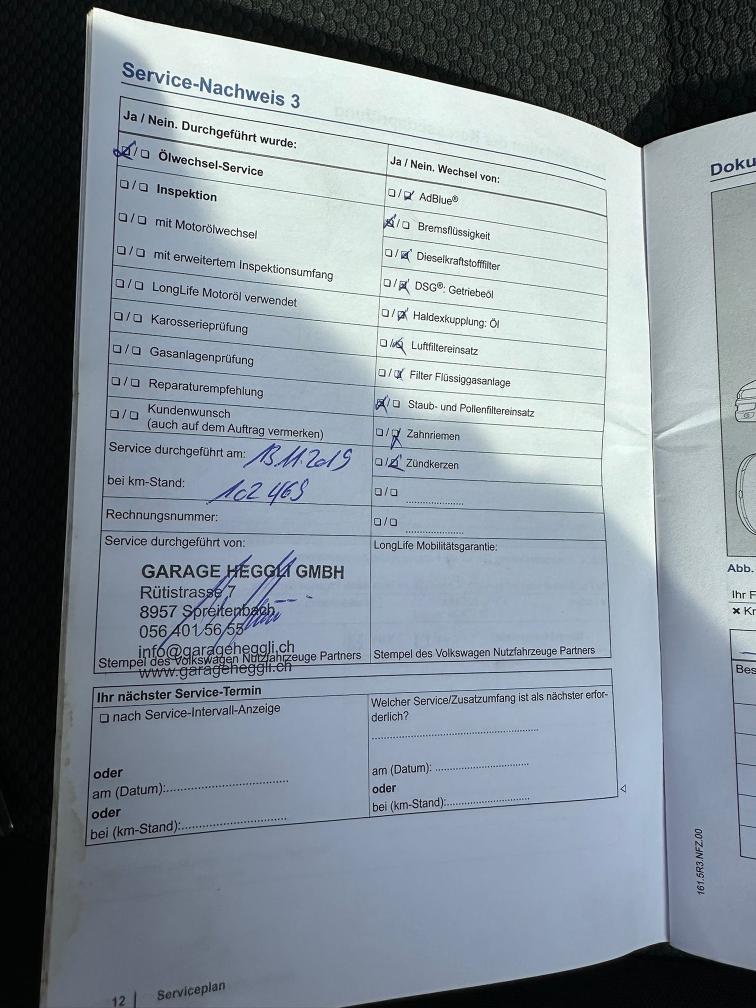 Service-Nachweis 3
Ja / Nein. Durchgeführt wurde:
☑/❏ Ölwechsel-Service
❏/❏ Inspektion
❏/❏ mit Motorölwechsel
❏/❏ mit erweitertem Inspektionsumfang
❏/❏ LongLife Motoröl verwendet
❏/❏ Karosserieprüfung
❏/❏ Gasanlagenprüfung
❏/❏ Reparaturempfehlung
❏/❏ Kundenwunsch
(auch auf dem Auftrag vermerken)
Service durchgeführt am: 13.11.2019
bei km-Stand: 102 469
Rechnungsnummer:
Service durchgeführt von:
GARAGE HEGGLI GMBH
Rütistrasse 7
8957 Spreitenbach
056 401 56 55
info@garageheggli.ch
Stempel des Volkswagen Nutzfahrzeuge Partners
www.garageheggli.ch
Ja / Nein. Wechsel von:
❏/☒ AdBlue®
☒/❏ Bremsflüssigkeit
❏/☒ Dieselkraftstofffilter
❏/☒ DSG®: Getriebeöl
❏/☒ Haldexkupplung: Öl
❏/☒ Luftfiltereinsatz
❏/☒ Filter Flüssiggasanlage
☒/❏ Staub- und Pollenfiltereinsatz
❏/☒ Zahnriemen
❏/☒ Zündkerzen
❏/❏ ....................
❏/❏ ....................
LongLife Mobilitätsgarantie:
Stempel des Volkswagen Nutzfahrzeuge Partners
Ihr nächster Service-Termin
❏ nach Service-Intervall-Anzeige
oder
am (Datum):..............................
oder
bei (km-Stand):..........................
Welcher Service/Zusatzumfang ist als nächster erfor-
derlich?
..................................................
am (Datum): ...........................
oder
bei (km-Stand):........................
12 | Serviceplan
161.5R3.NFZ.00
Doku
Abb.
Ihr F
✖ Kr
Bes